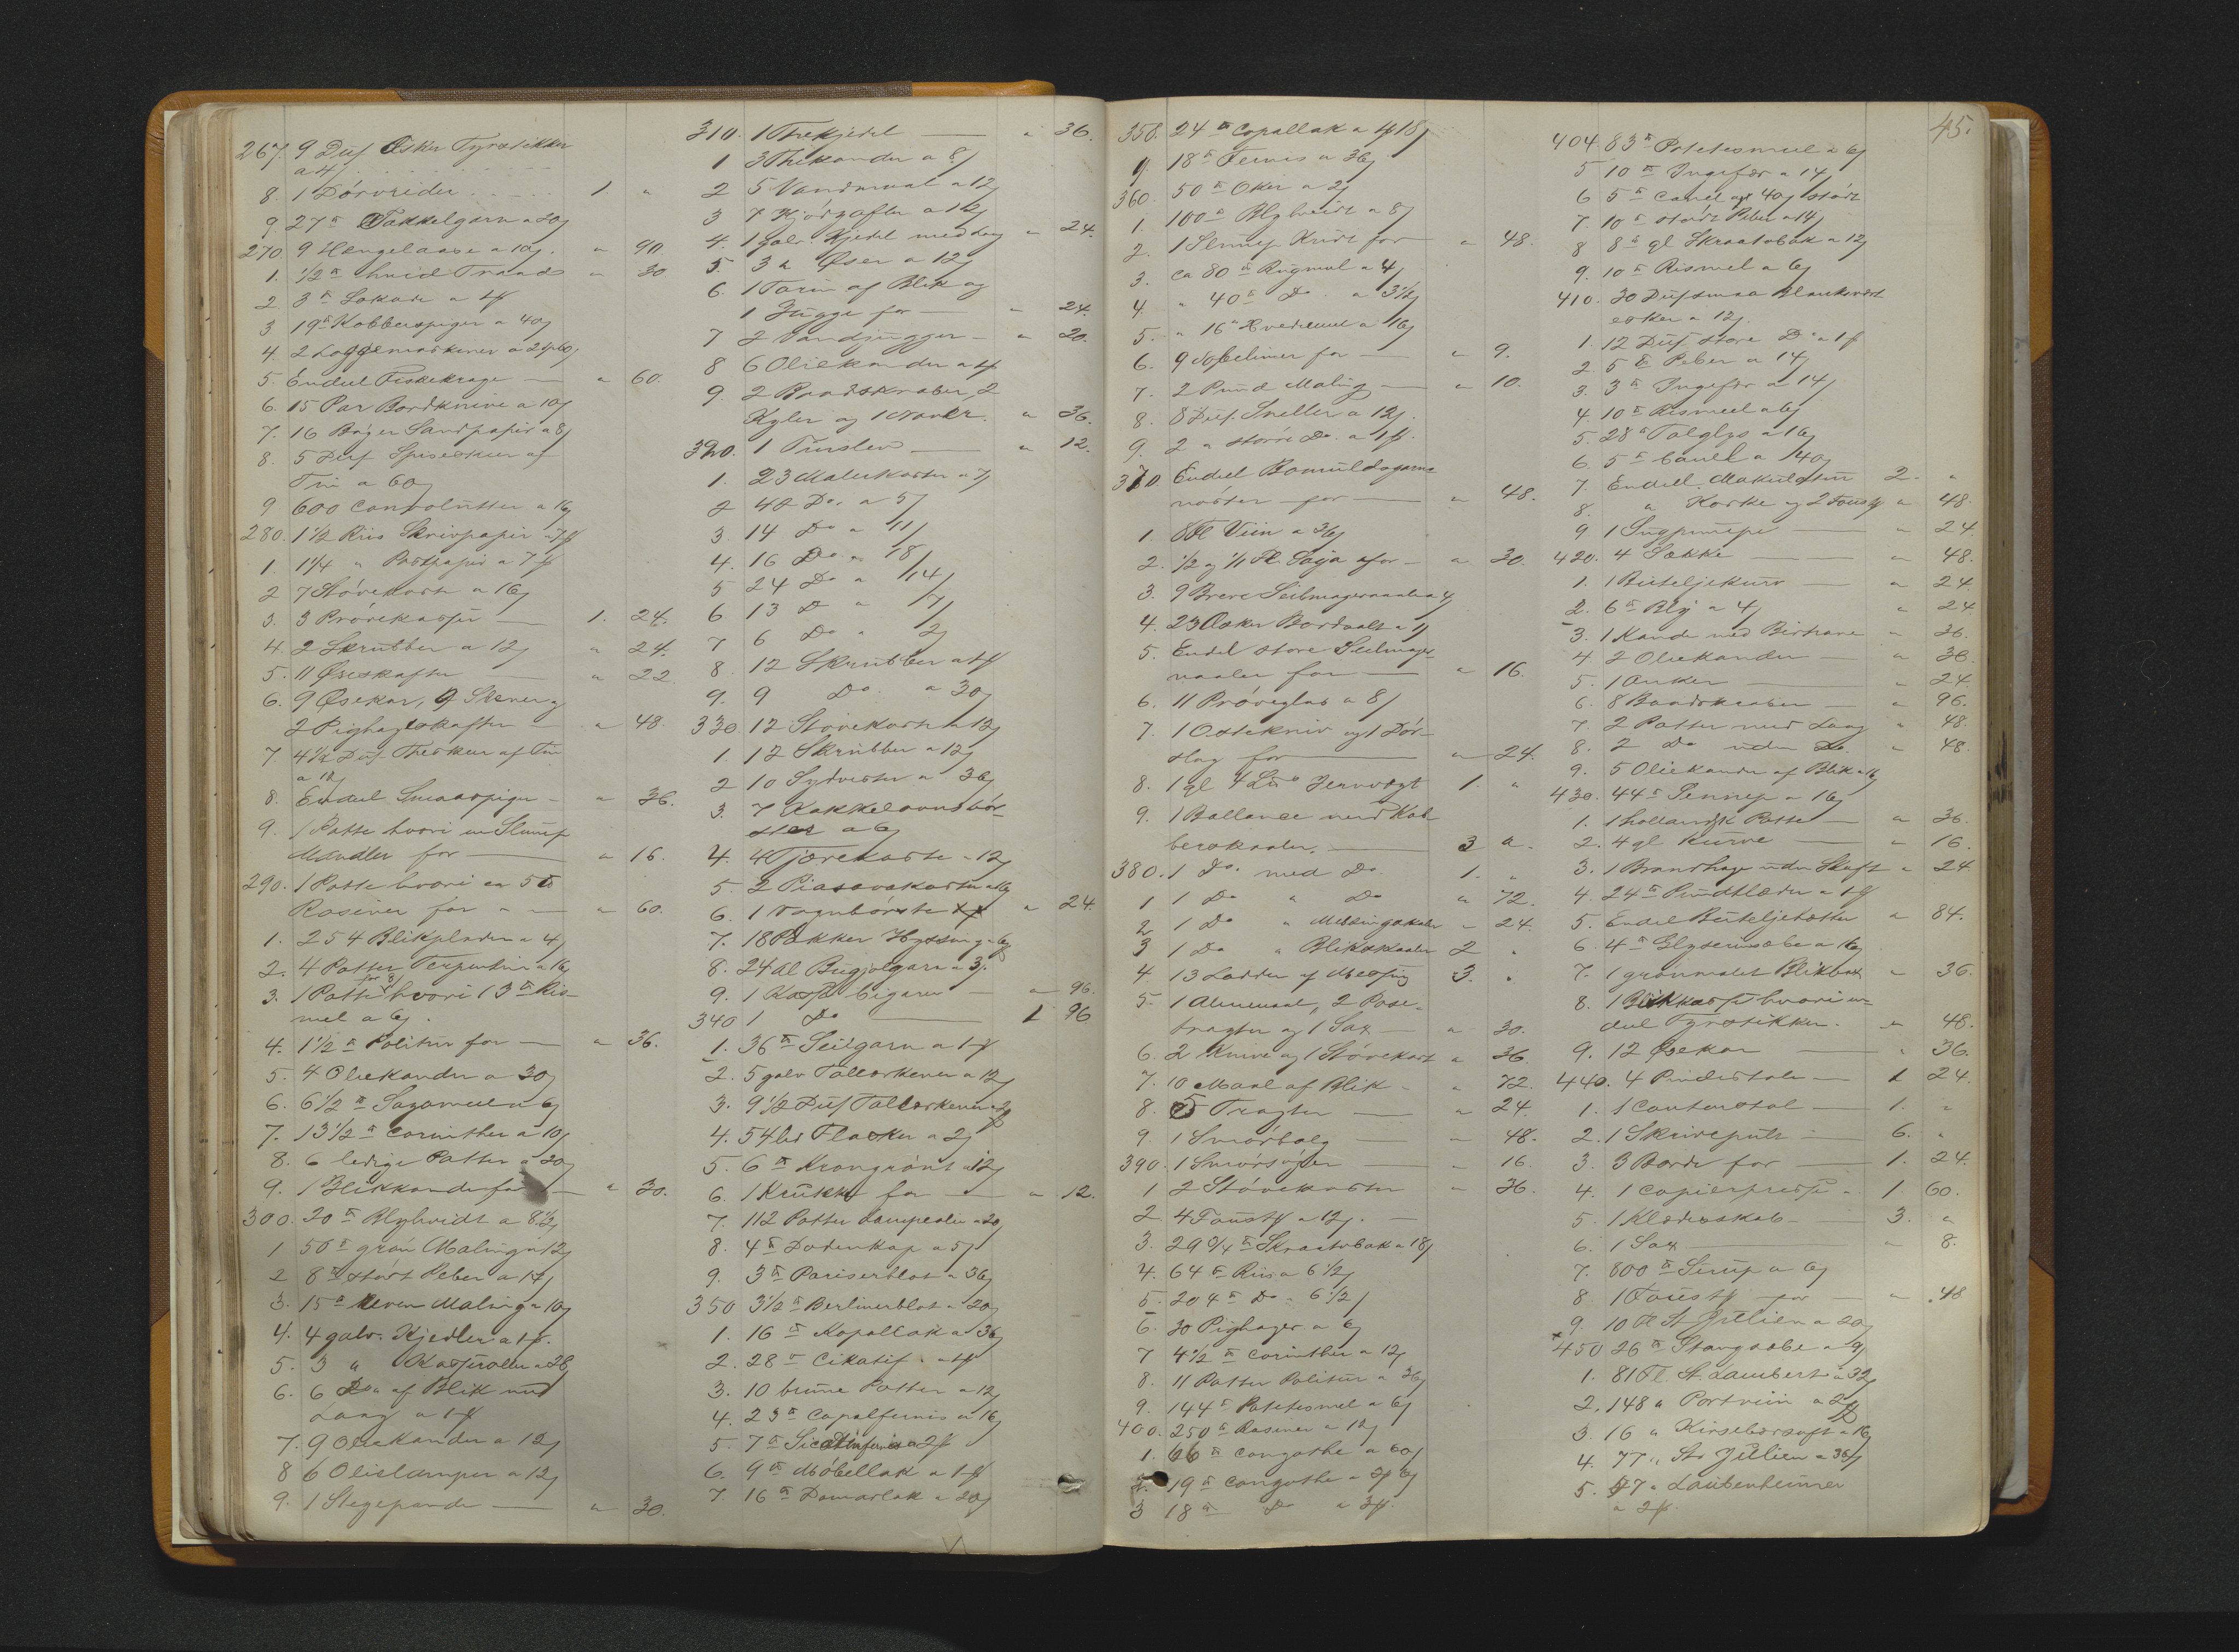 267. 9 Dus Æsker Tyrstikker
a 4 ß
8. 1 Dörvrider 1. "
9. 27 ℔ Takkelgarn a 20 ß
270. 9 Hængelaase a 10 ß. " 90.
1. 1/2 ℔ hvid Traad " 30
2 3 ℔
3 19 ℔ Kobberspiger a 40 ß
4. 2 Loggemaskiner a
5. Endeel Fiskekroge — " 60.
6. 15 Par Bordknive a 10 ß
7. 16 Böger Sandpapir a 8 ß
8. 5 Dus Spiseskeer af
Tin a 60 ß
9 600 Convolutter a 16 ß
280. 1 1/2 Riis Skrivpapir a
1. 1 1/4 " Postpapir a 7
2 7 Stövekoste a 16 ß
3. 3 Prövekasser — 1. 24.
4. 2 Skrubber a 12 ß " 24.
5. 11 Öseskafter " 22.
6. 9 Øsekar, 9 Stever og
2 Pighageskafter — " 48.
7. 4 1/2 Dus Theskeer af Tin
a 18 ß
8. Endeel Smaaspiger — " 36.
9. 1 Potte hvori en Slump
Mandler for — " 16.
290. 1 Potte hvori ca 5 ℔
Rosiner for " — " 60.
1. 254 Blikplader a 4 ß
2. 4 Potter Terpentin a 16 ß
3. 1 Potte for 8 ß hvori 13 ℔ Ris-
mel a 6 ß.
4. 1 1/2 ℔ Politur for — " 36.
5. 4 Oliekander a 30 ß
6. 6 1/2 ℔ Sagomeel a 6 ß
7. 13 1/2 ℔ Corinther a 10 ß
8. 6 ledige Potter a 20 ß
9. 1 Blikkande for — " 30.
300. 20 ℔ Blyhvidt a 8 1/2 ß
1 50 ℔ grön Maling a 12 ß
2 8 ℔ stödt Peber a 14 ß
3. 15 ℔ reven Maling a 10 ß
4. 4 galv. Kjedler a 1
5. 3 " Kasseroller a 28 ß
6. 6 Do af Blik med
Laag a 1
7. 9 Oliekander a 12 ß
8 6 Olielamper a 12 ß
9. 1 Stegepande — " 30.
310. 1 Thekjedel — " 36.
1 3 Thekander a 8 ß
2 5 Vandmaal a 12 ß
3 7
4. 1 galv. Kjedel med Laag " 24.
5. 3 " Øser a 12 ß
6. 1 Tarin af Blik og
1 Jugge for — " 24.
7 2 Vandjugger — " 20.
8 6 Oliekander a
9. 2 Brødskraber, 2
Kyler og 1 " 36.
320. 1 — " 12.
1. 23 Malerkoster a 7
2 40 Do. a 5 ß
3. 14 Do a 11 ß
4. 16 Do a 18 ß
5 24 Do a 14 ß
6. 13 D a 17 ß
7 6 Do a 2 ß
8. 12 Skrubber a
9. 9 Do. a 30 ß
330. 12 Stövekoste a 12 ß
1. 12 Skrubber a 12 ß
2 10 Sydvester a 36 ß
3. 7 Kakkelovnsbör-
ster a 6 ß
4. 4 Tjærekoste a 12 ß
5. 2 Piasavakoster a 16 ß
6. 1 Vognbörste " 24.
7. 18 Pakker Hyssing a 6 ß
8. 24 al Bugjolgarn a 3 ß.
9. 1 Kasse Cigarer — " 96.
340 1 Do — 1 96
1. 36 ℔ Seilgarn a 1
2. 5 galv Tallerkener a 12 ß
3. 9 1/2 Dus Tallerkener a
4. 54 Flasker a 2 ß
5. 6 ℔ Krongrönt a 12 ß
6. 1 Krukke for — " 12.
7. 112 Potter Lampeolie a 20 ß
8. 4 ℔ Dodenkop a 5 ß
9. 3 ℔ Pariserblat a 36 ß
350 3 1/2 ℔ Berlinerblat a 20 ß
1. 16 ℔ Kopallak a 36 ß
2. 28 ℔ Cikatif a
3. 10 brune Potter a 12 ß
4. 23 ℔ Copalfernis a 16 ß
5. 7 ℔
6. 9 ℔ Möbellak a 1
7. 16 ℔ Damarlak a 20 ß
45.
358. 24 ℔ Copallak a
9. 18 ℔ Fernis a 36 ß
360. 50 ℔ Oker a 2 ß
1. 100 ℔ Blyhvidt a 8 ß
2. 1 Slump Kridt for — " 48.
3. ca 80 ℔ Rugmel a 4 ß
4. " 40 ℔ Do. a 3 1/2 ß
5. " 16 ℔ Hvedemel a 16 ß
6. 9 for — " 9.
7. 2 Pund Maling — " 10.
8. 8 Dus. Sneller a 12 ß.
9. 2 " större Do. a 1
370. Endeel Bomuldsgarns-
nöster for — " 48.
1. 8 Fl Viin a 36 ß
2. 1/2 og 1/1 Fl. Soja for — " 30.
3. 9 Breve Seilmagernaale a 4 ß
4. 23 Æsker Bordsalt a
5. Endel store Seilmager-
naaler for — " 16.
6. 11 Pröveglas a 8 ß
7. 1 Ostekniv og 1 Dör-
slag for — " 24.
8. 1 gl Jernvægt 1. "
9. 1 Ballance med Kob-
berskaaler. — 3 "
380. 1 Do. med Do 1. "
1 1 Do " Do " 72.
2 1 Do " Messingskaaler " 24.
3 1 Do " Blikskaaler 2 "
4. 13 Lodder af Messing 3. "
5. 1 Alenmaal, 2 Pose-
tragter og 1 Sax — " 30.
6. 2 Knive og 1 Stövekost " 36.
7. 10 Maal af Blik — " 72.
8. 5 Tragter — " 24.
9. 1 Smörbalg — " 48.
390. 1 Smörsöger — " 16.
1 2 Stövekoster " 36.
2. 4 a 12 ß. —
3. 29 3/4 ℔ Skraatobak a 18 ß
4. 64 ℔ Riis a 6 1/2 ß
5. 204 ℔ Do a 6 1/2 ß
6. 30 Pighager a 6 ß
7 4 1/2 ℔ Corinther a 12 ß
8. 11 Potter Politur a 36 ß
9. 144 ℔ Potetesmel a 6 ß
400. 250 ℔ Rosiner a 12 ß
1. 66 ℔ Congothe a 60 ß
2. 19 ℔ Congothe a
3 18 ℔ Do a
404. 83 ℔ Potetesmeel a 6 ß
5 10 ℔ Ingefær a 14 ß
6 5 ℔ Canel a 40 ß stödt
7. 10 ℔ stödt Peber a 14 ß
8 8 ℔ gl Skraatobak a 12 ß
9. 10 ℔ Rismel a 6 ß
410. 30 Dus smaa Blanksvert-
esker a 12 ß.
1. 12 Dus. store Do a 1
2. 5 ℔ Peber a 14 ß
3. 3 ℔ Ingefær a 14 ß
4. 10 ℔ Rismeel a 6 ß
5. 28 ℔ Talglys a 16 ß
6. 5 ℔ Canel a 40 ß
7. Endeel Makulatur 2. "
8. " Korke og 2 " 48.
9 1 — " 24.
420. 4 Sække — " 48.
1. 1 Buteljekurv — " 24.
2. 6 ℔ Bly a 4 ß " 24
3. 1 Kande med Berhane " 36.
4. 2 Oliekander — " 30.
5. 1 Anker — " 24.
6. 8 Baandskraber — " 96.
7 2 Potter med Laag " 48.
8. 2 Do uden Do. " 48.
9. 5 Oliekander af Blik a 16 ß
430. 44 ℔ Sennep a 16 ß
1. 1 hollandsk Potte — " 36.
2. 4 gl Kurve — " 16.
3. 1 Brandhage uden Skaft " 24.
4. 24 ℔ Pundtlæder a 1
5. Endel Buteljehætter " 84.
6. 4 ℔ Glyserinsæbe a 16 ß
7. 1 grønmalet Blikbox " 36.
8. 1 Blikkasse hvori en-
deel Fyrstikker. " 48.
9. 12 Øsekar — " 36.
440. 4 Pindestole — 1 24.
1. 1 Contorstol — 1. "
2. 1 Skrivepult — 6. "
3. 3 Borde for — 1. 24.
4. 1 Copierpresse — 1. 60.
5. 1 Klædesskab — 3. "
6. 1 Sax — " 8.
7. 800 ℔ Sirup a 6 ß
8 1 for — " 48
9. 10 Fl St Jullien a 20 ß
450 26 ℔ Stangsæbe a 9 ß
1. 81 Fl. St. Lambert a 32 ß
2. 148 " Portviin a
3. 16 " Kirsebærsaft a 16 ß
4. 77 " St. Jullien a 36 ß
5. " Laubenheimer
a 2